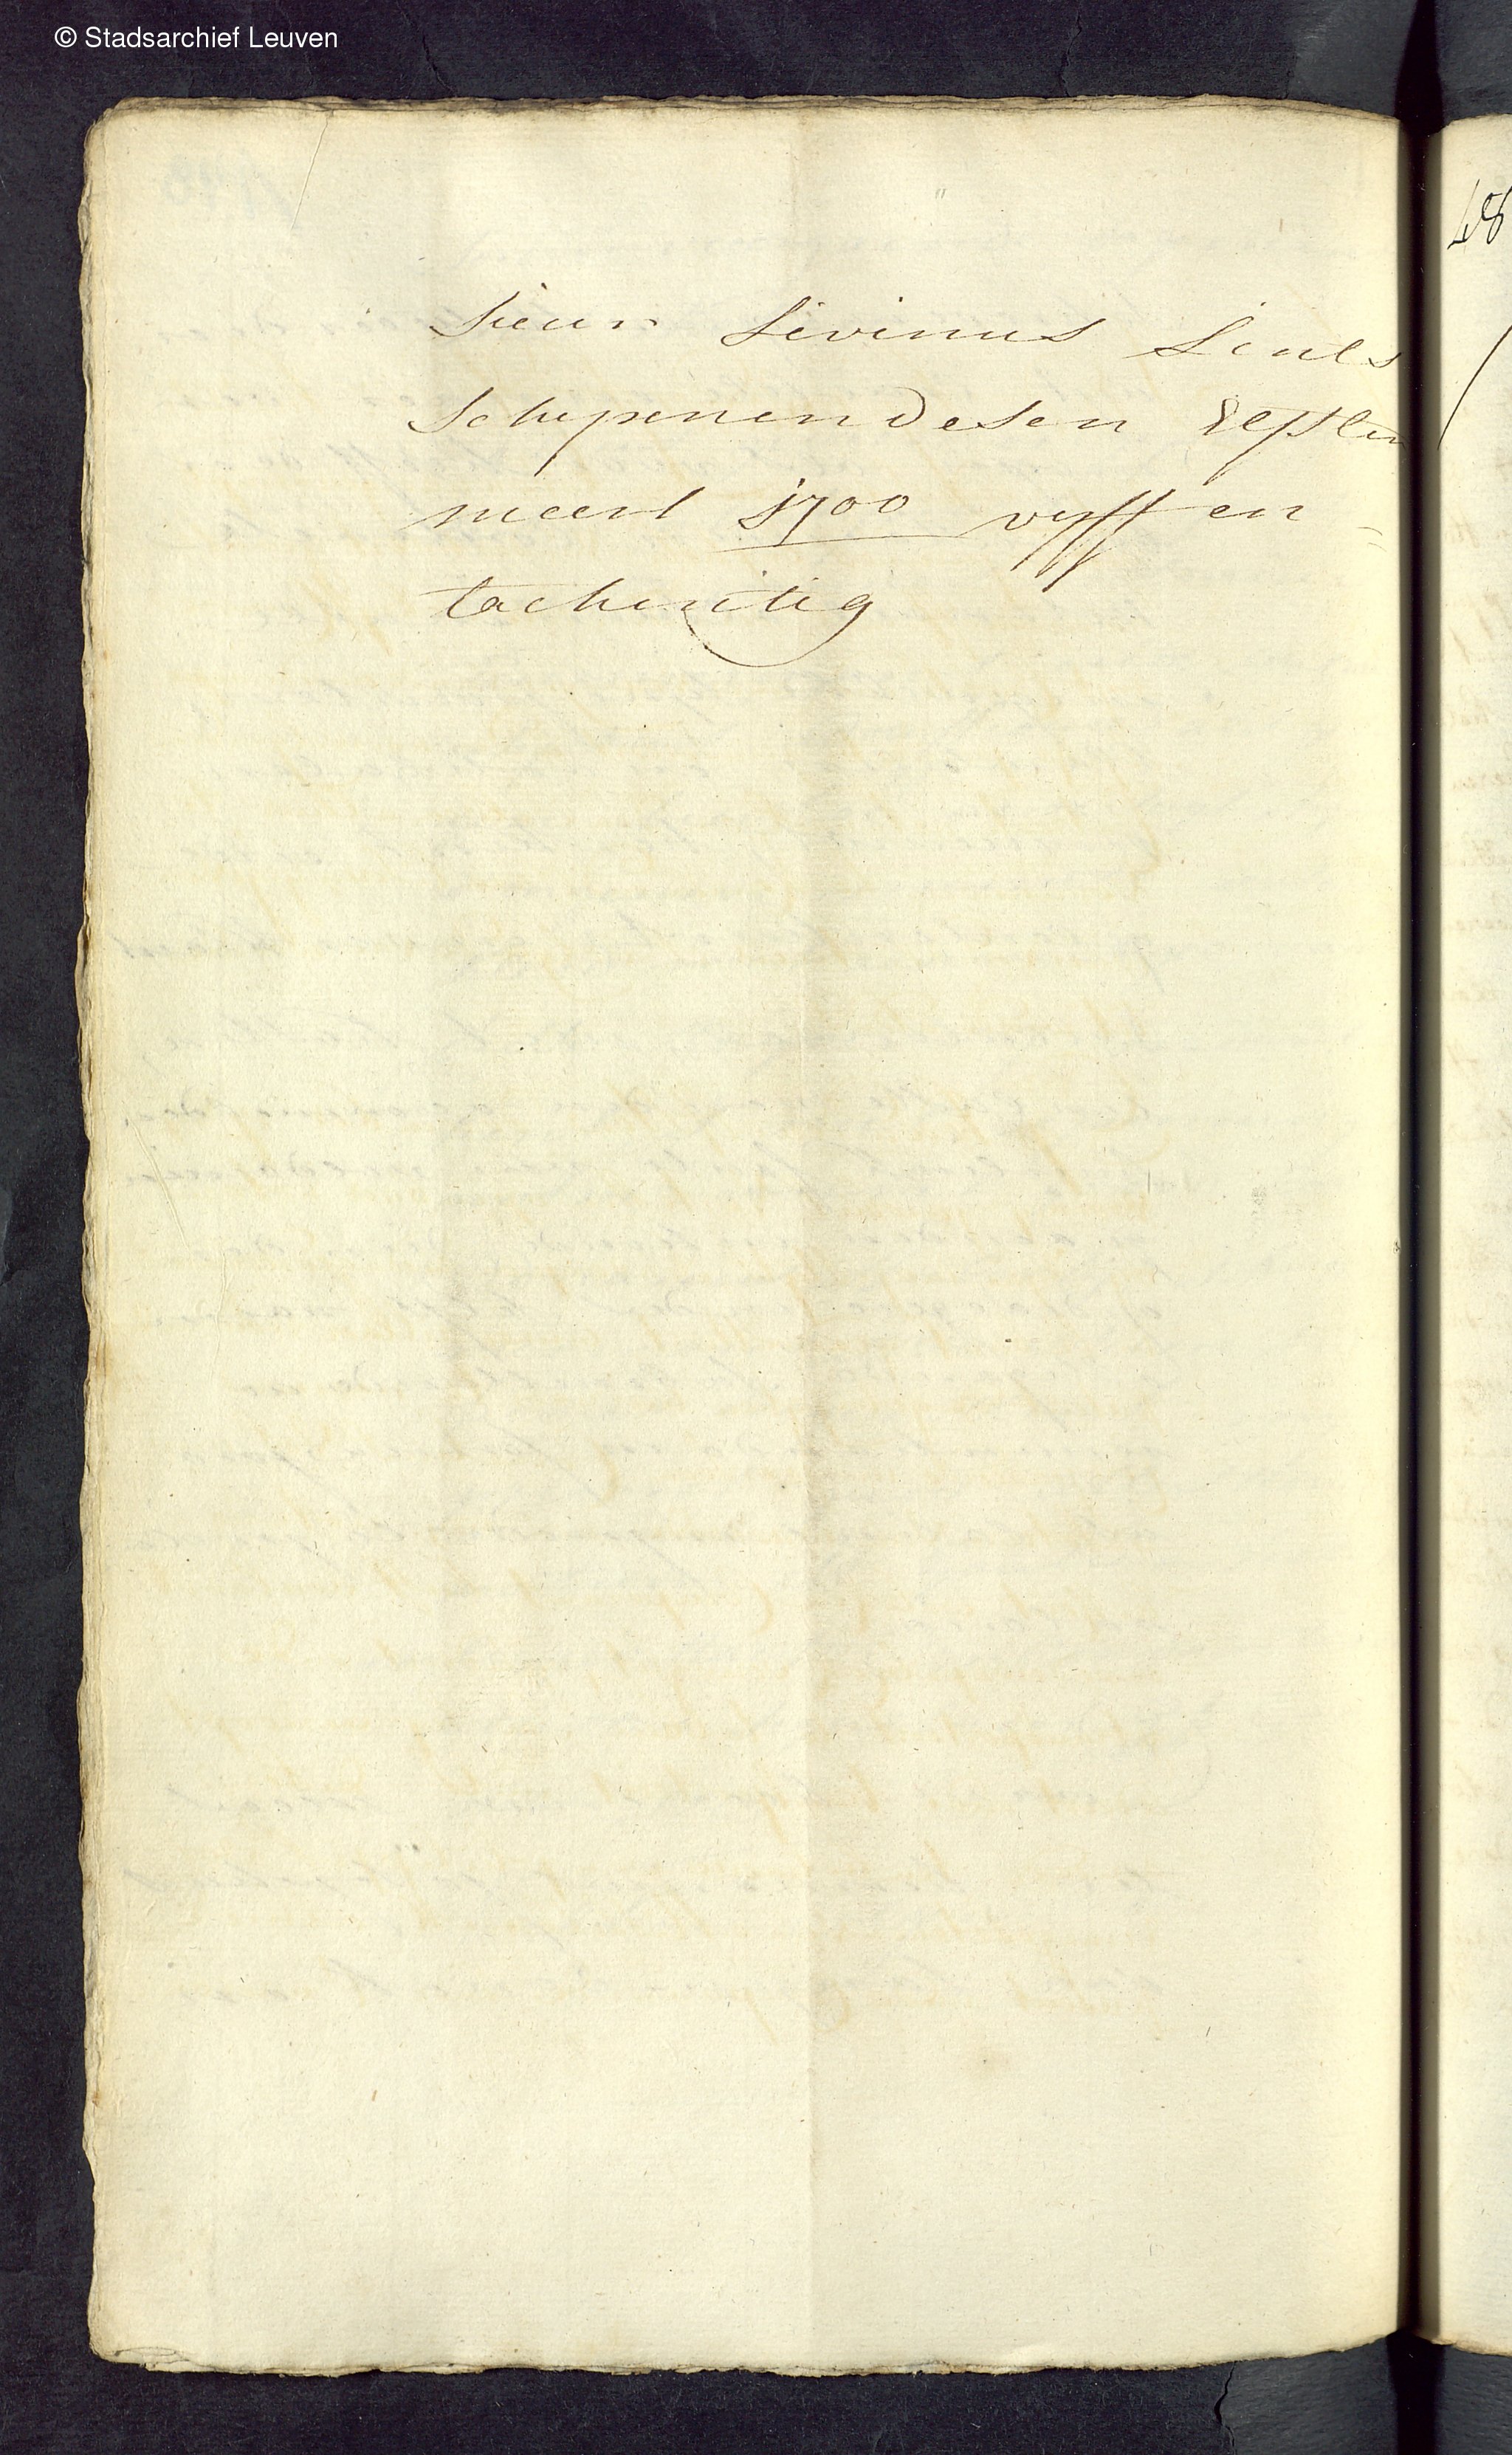 © Stadsarchief Leuven
sieur Livinus Lints
schepenen desen Elfsten
meert 1700 vyff en
tachentig